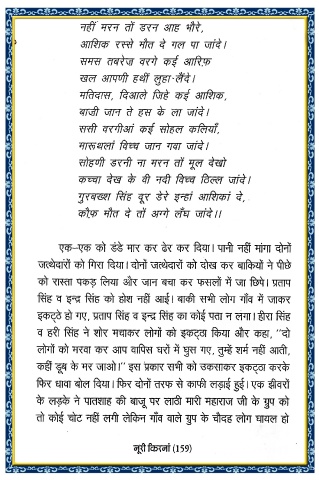 नहीं मरन तों डरन आह भौरे,
आशिक रस्से मौत दे गल पा जांदे।
समस तबरेज़ वरगे कई आरिफ़
खल आपणी हथीं लुहा लैंदे।
मतिदास, दिआले जिहे कई आशिक,
बाजी जान ते हस के ला जांदे।
ससी वरगीआं कई सोहल कलियाँ,
मारूथलां विच्च जान गवा जांदे।
सोहणी डरनी ना मरन तों मूल देखो
कच्चा देख के वी नदी विच्च ठिल्ल जांदे।
गुरबख्श सिंह दूर डेरे इन्हां आशिकां दे,
कौफ़ मौत दे तों अग्गे लँघ जांदे।।
एक–एक को डंडे मार कर ढेर कर दिया। पानी नहीं मांगा दोनों
जत्थेदारों को गिरा दिया। दोनों जत्थेदारों को दोख कर बाकियों ने पीछे
को रास्ता पकड़ लिया और जान बचा कर फसलों में जा छिपे। प्रताप
सिंह व इन्द्र सिंह को होश नहीं आई। बाकी सभी लोग गाँव में जाकर
इकट्ठे हो गए, प्रताप सिंह व इन्द्र सिंह का कोई पता न लगा। हीरा सिंह
व हरी सिंह ने शोर मचाकर लोगों को इकट्ठा किया और कहा, ‘‘दो
लोगों को मरवा कर आप वापिस घरों में घुस गए, तुम्हें शर्म नहीं आती,
कहीं डूब के मर जाओ।’’ इस प्रकार सभी को उकसाकर इकट्ठा करके
फिर धावा बोल दिया। फिर दोनों तरफ से काफी लड़ाई हुई। एक झीवरों
के लड़के ने पातशाह की बाजू पर लाठी मारी महाराज जी के ग्रुप को
तो कोई चोट नहीं लगी लेकिन गाँव वाले ग्रुप के चौदह लोग घायल हो
नूरी किरनां (159)